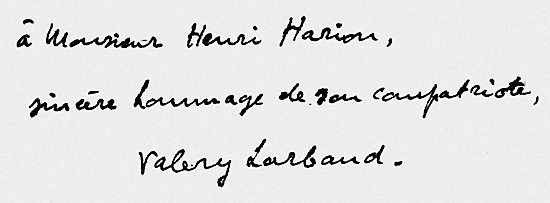 à Monsieur Henri Harion,
sincère hommage de son compatriote,
Valery Larbaud.